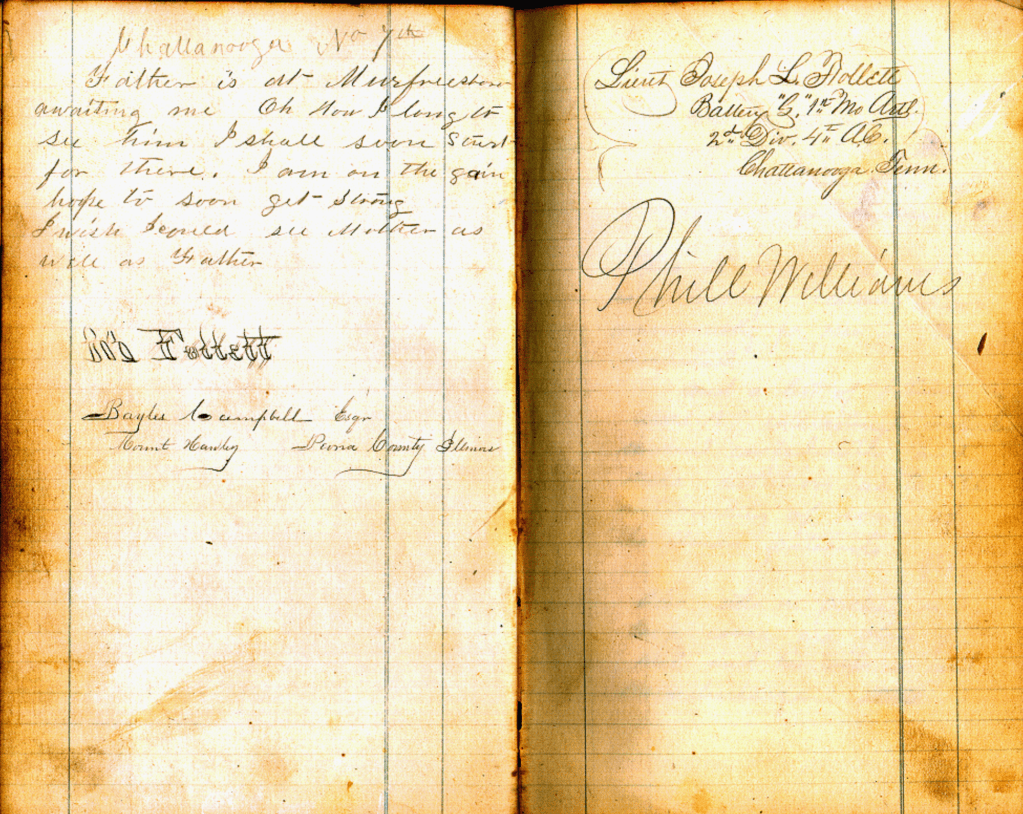 Chattanooga No 7th
Father is at Murfreesboro
awaiting me Oh How I long to
see him I shall soon Start
for there. I am on the gain
hope to soon get Strong
I wish I could see Mother as
well as Father
Follett
Bayles Campbell Esqr
Mount Hawley Peoria County Illinois
Lieut Joseph L. Follett
Battery "G." 1st Mo Artl.
2d Div. 4th A.C.
Chattanooga Tenn.
Phill Williams